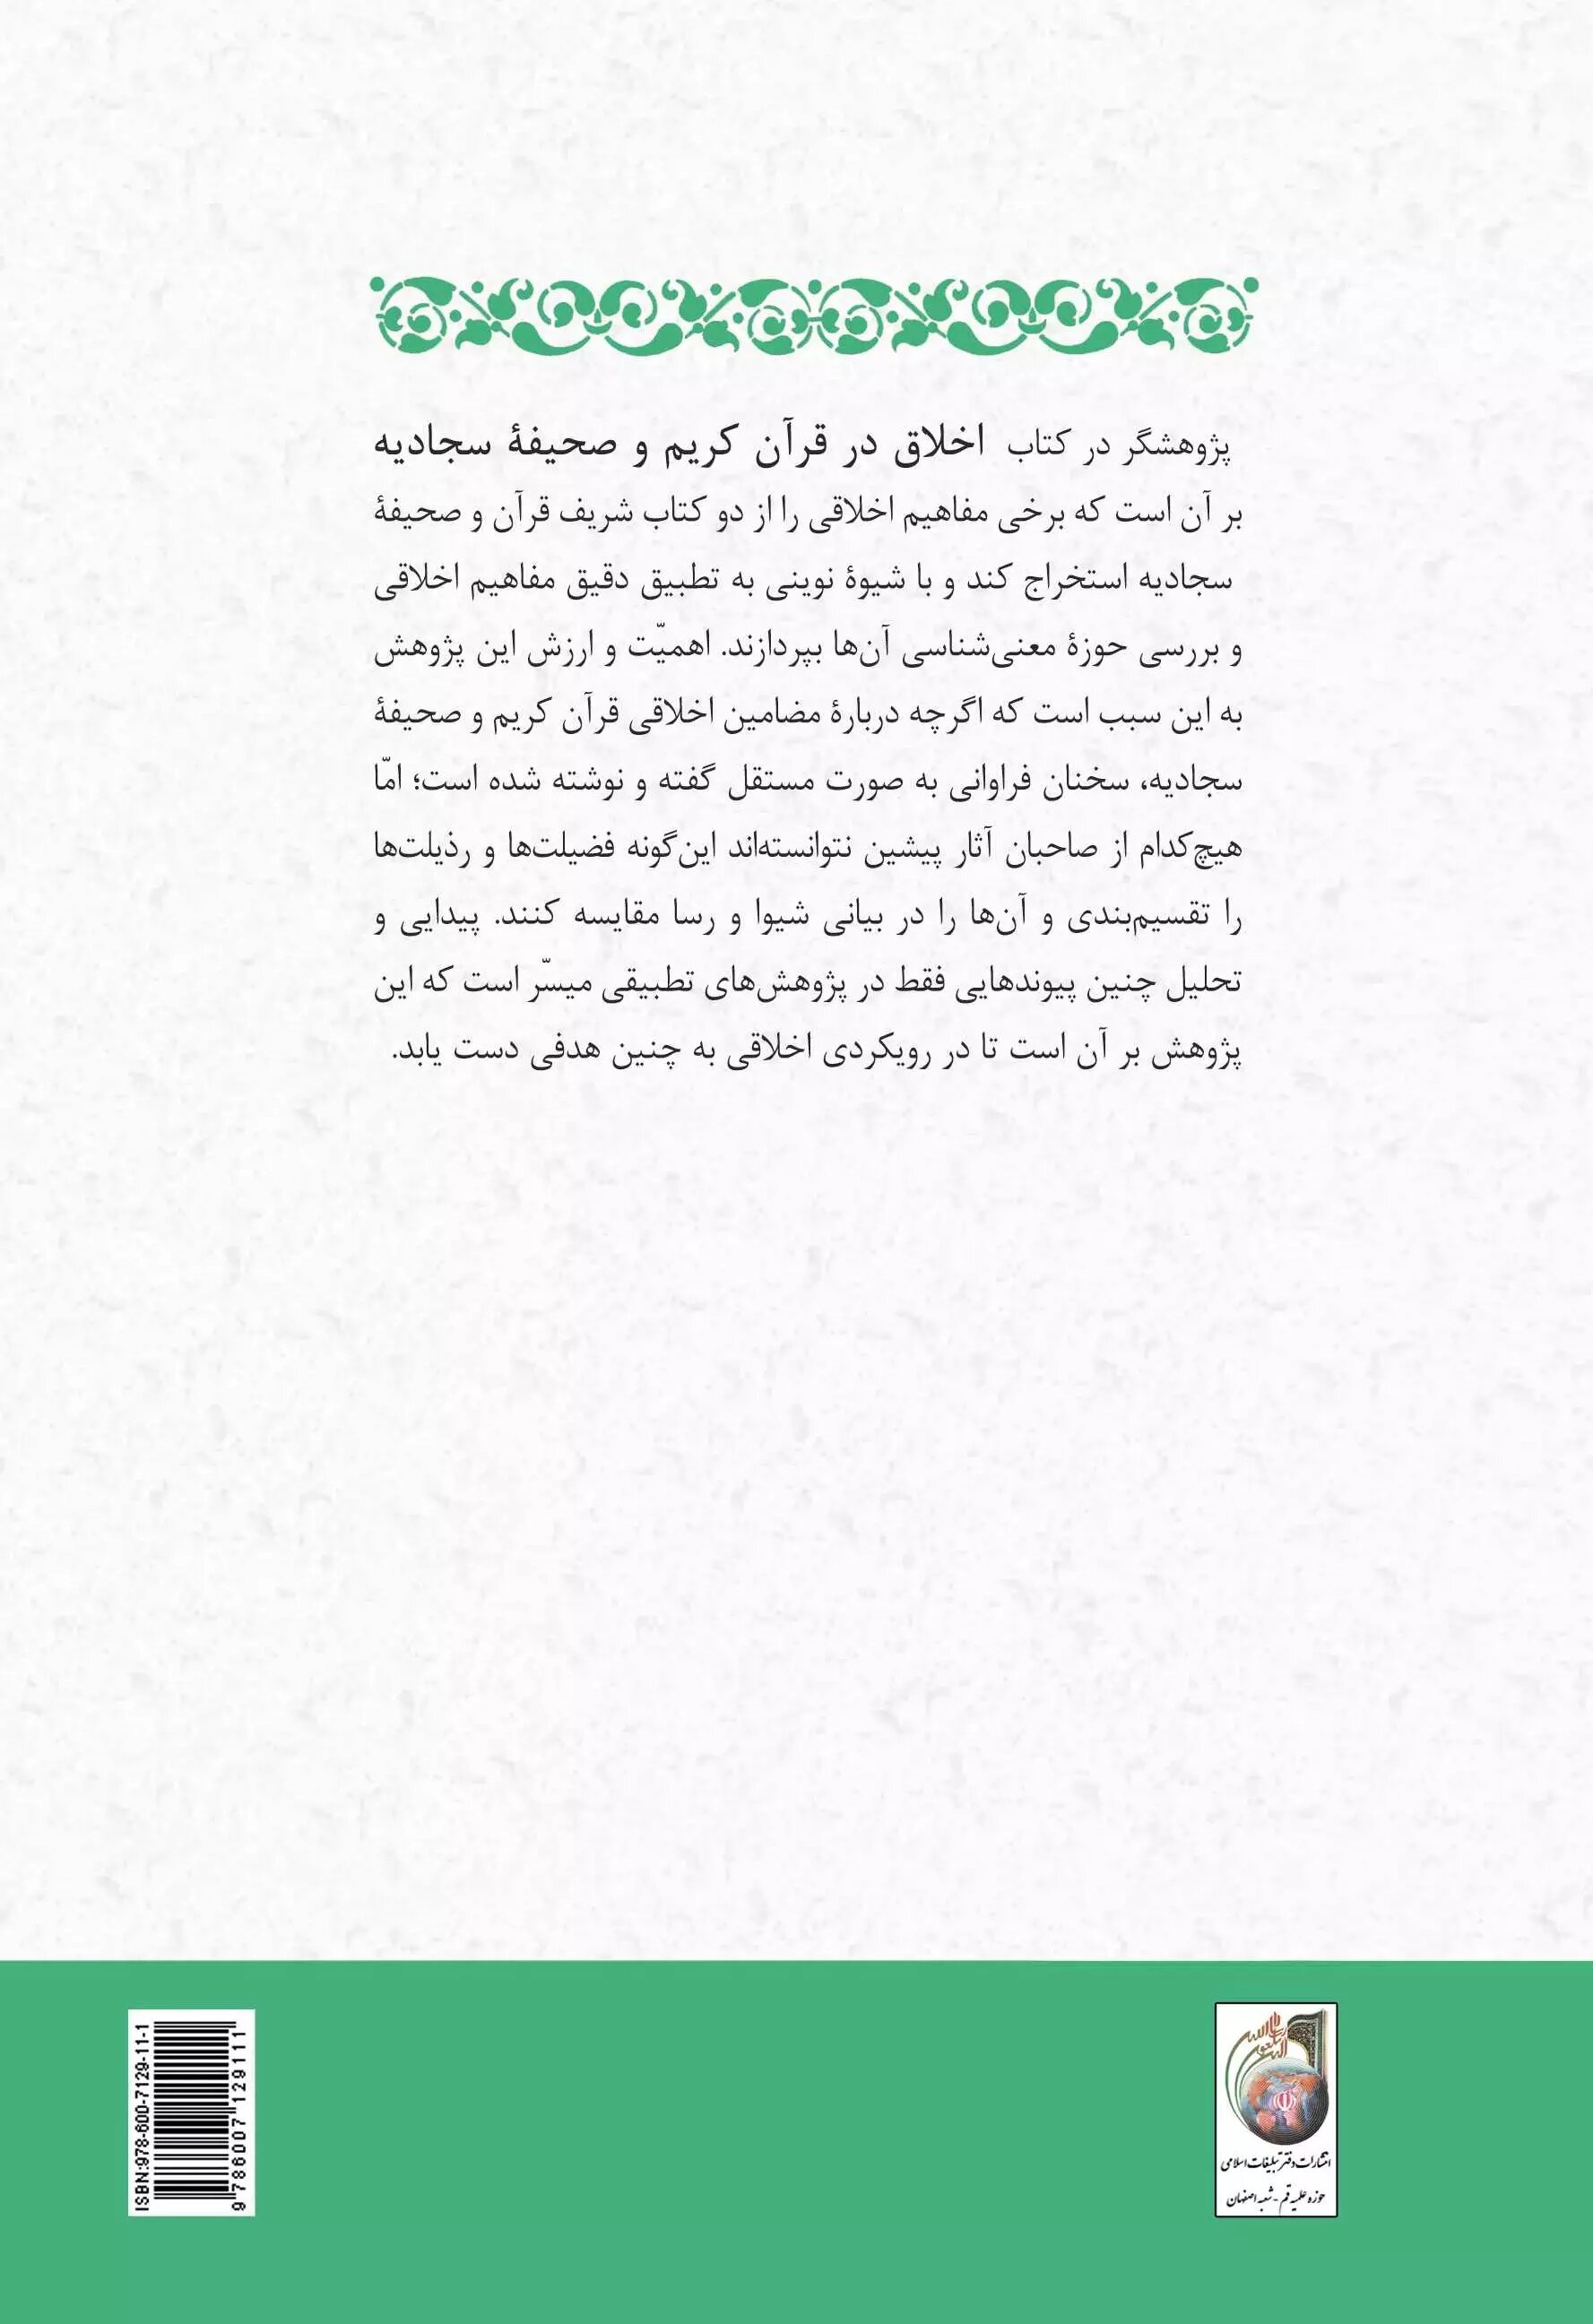 پژوهشگر در کتاب اخلاق در قرآن کریم و صحیفهٔ سجادیه
بر آن است که برخی مفاهیم اخلاقی را از دو کتاب شریف قرآن و صحیفهٔ
سجادیه استخراج کند و با شیوهٔ نوینی به تطبیق دقیق مفاهیم اخلاقی
و بررسی حوزهٔ معنی‌شناسی آن‌ها بپردازند. اهمیّت و ارزش این پژوهش
به این سبب است که اگرچه دربارهٔ مضامین اخلاقی قرآن کریم و صحیفهٔ
سجادیه، سخنان فراوانی به صورت مستقل گفته و نوشته شده است؛ امّا
هیچ‌کدام از صاحبان آثار پیشین نتوانسته‌اند این‌گونه فضیلت‌ها و رذیلت‌ها
را تقسیم‌بندی و آن‌ها را در بیانی شیوا و رسا مقایسه کنند. پیدایی و
تحلیل چنین پیوندهایی فقط در پژوهش‌های تطبیقی میسّر است که این
پژوهش بر آن است تا در رویکردی اخلاقی به چنین هدفی دست یابد.
ISBN:978-600-7129-11-1
9 786007 129111
انتشارات دفتر تبلیغات اسلامی
حوزه علمیه قم - شعبه اصفهان